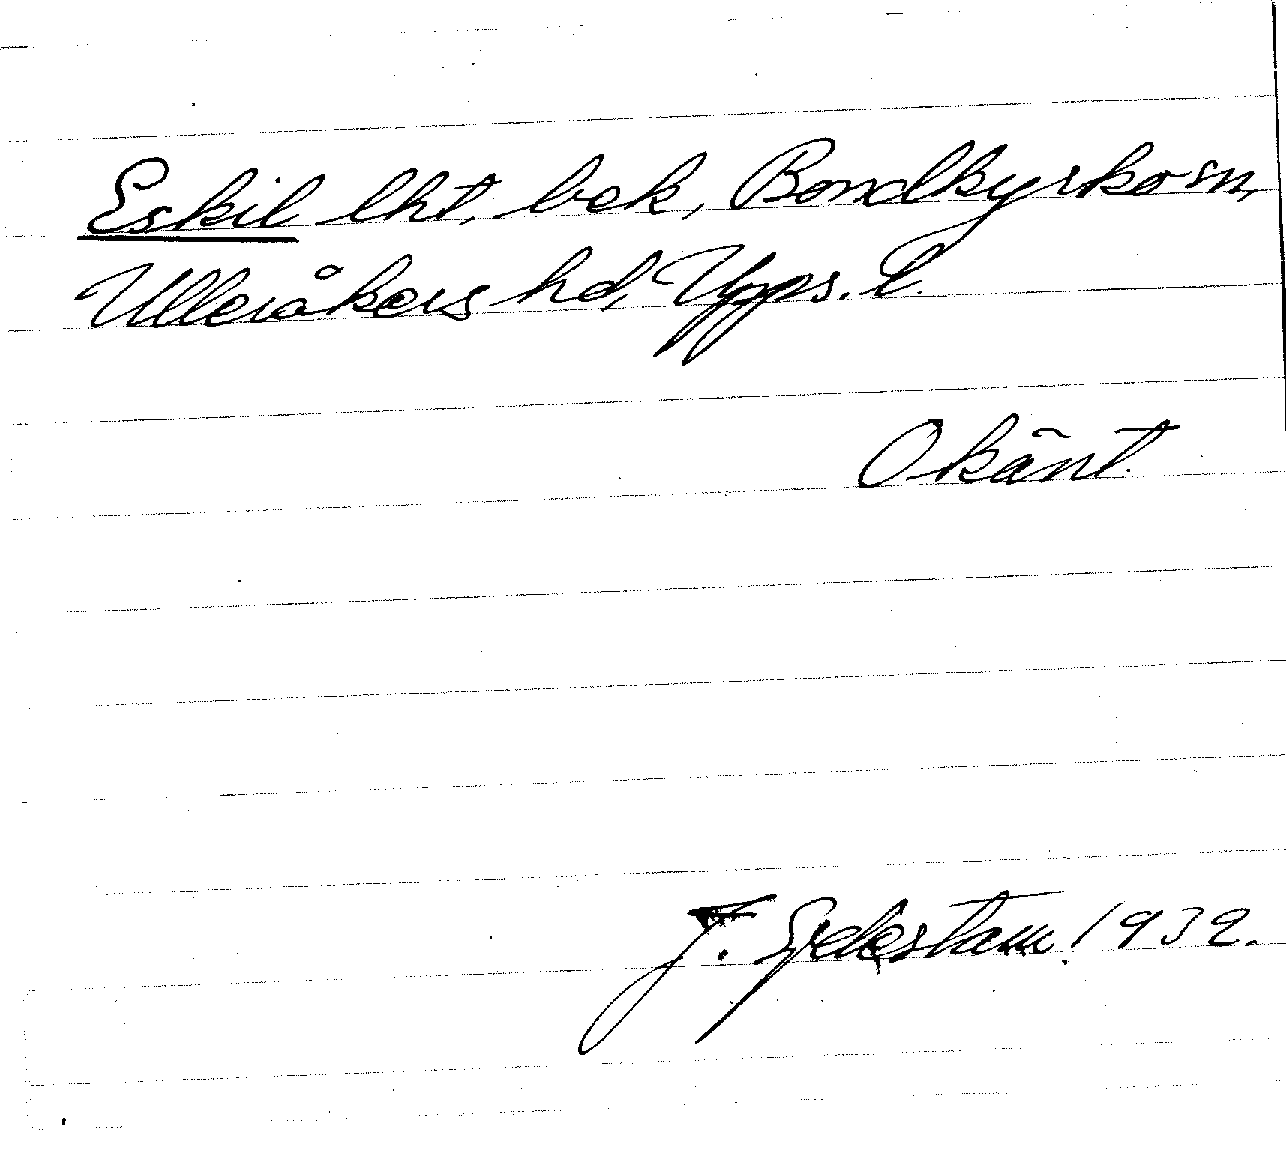 Eskil lht. bek, Bondkyrko sn,
Ulleråkers hd, Upps. l.
Okänt.
J. 1932.